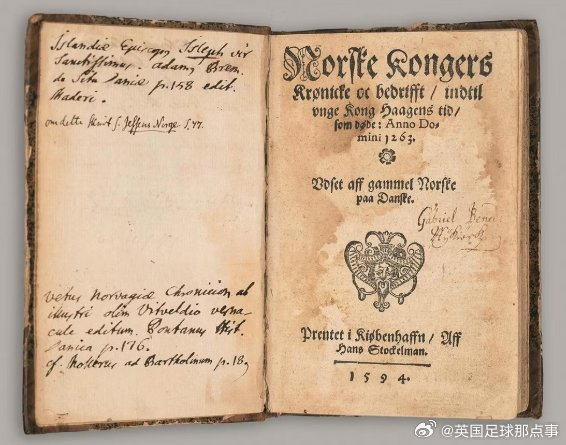 Islandiæ Episcopus Isleph vir
Sanctissimus. adam Brem.
de Situ Daniæ p. 158 edit.
Maderi.
om dette skrift s. Jessens Norge S. 77.
vetus Norvagiæ Chronicion ab
illustri olim Vitveldio verna-
cule editum. Pontanus Hist.
Danica p. 176.
cf. ad Bartholinum p. 18
Norske Kongers
Krønicke oc bedrifft / indtil
vnge Kong Haagens tid /
som døde: Anno Do-
mini 1263.
Vdset aff gammel Norske
paa Danske.
Gabriel
Prentet i Kiøbenhaffn / Aff
Hans Stockelman.
1594.
@英国足球那点事